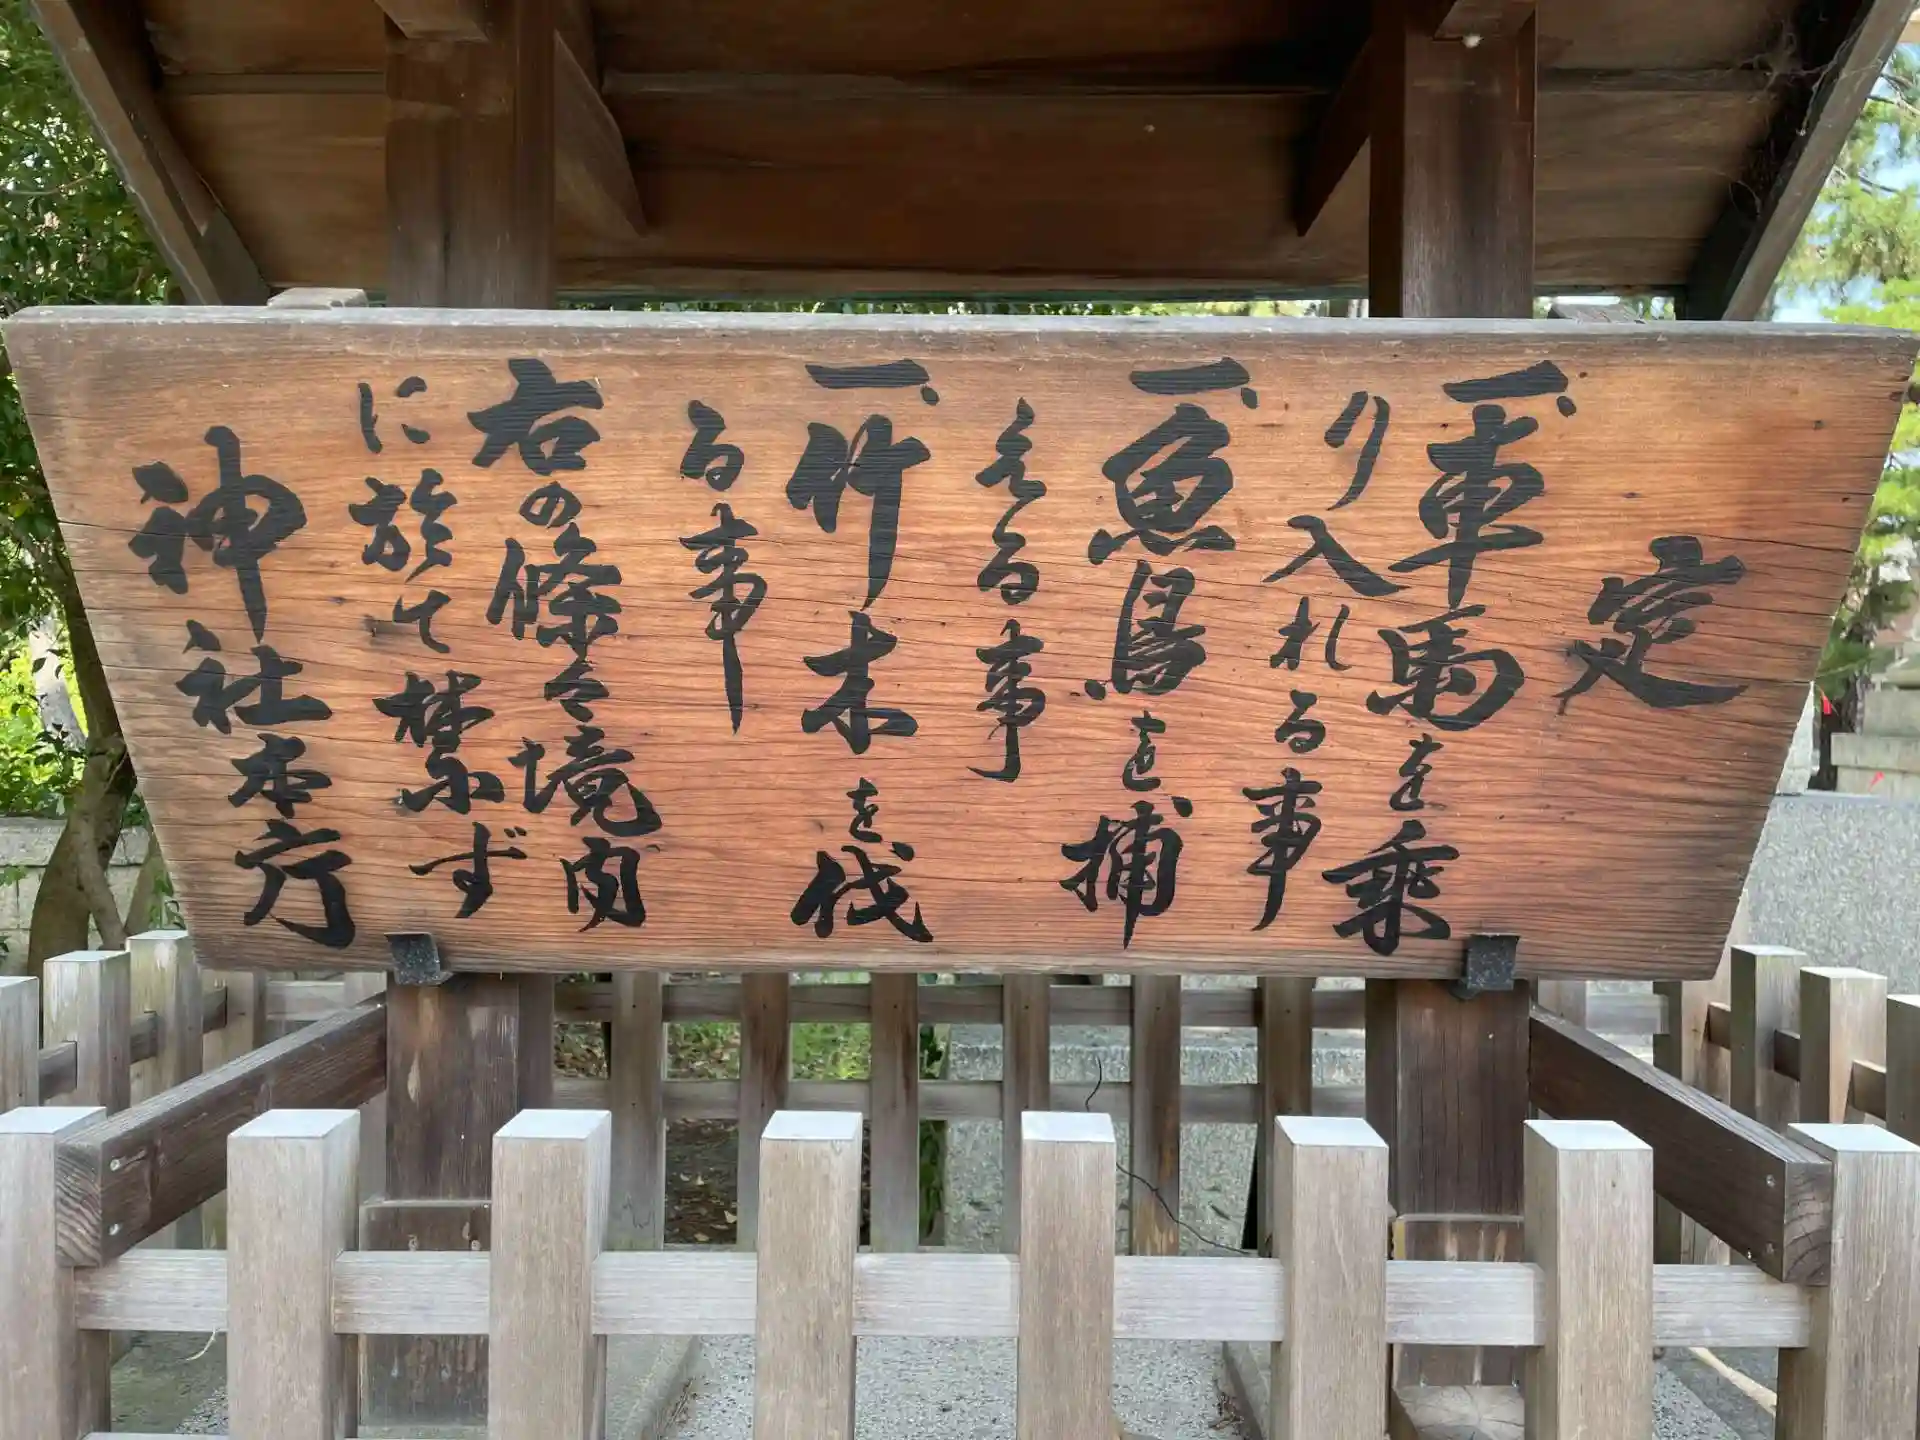 定
一、車馬を乗
り入れる事
一、魚鳥を捕
える事
一、竹木を伐
る事
右の條々境内
に於て禁ず
神社本庁